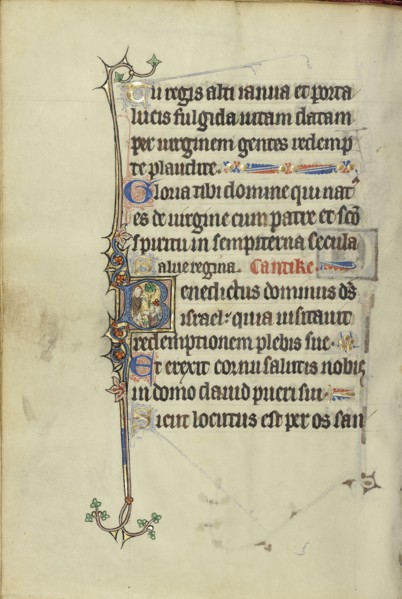 Tu regis alti ianua et porta
lucis fulgida uitam datam
per uirginem gentes redemp
te plaudite.
Gloria tibi domine qui nat᾽
es de uirgine cum patre et sc̄o
spiritu in sempiterna secula
Salue regina. Cantike.
Benedictus dominus ds̄
israel: quia uisitauit
redemptionem plebis sue.
Et erexit cornu salutis nobis
in domo dauid pueri sui.
Sicut locutus est per os san